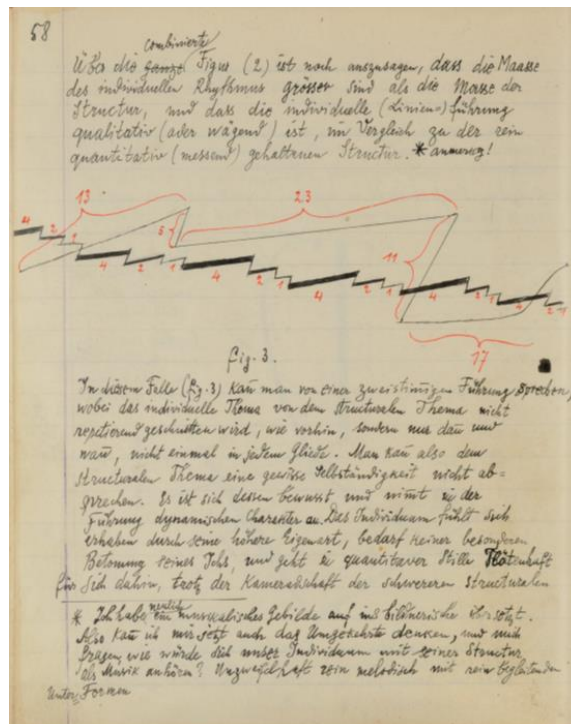 58
combinierte
Über die ganze Figur (2) ist noch auszusagen, dass die Maasse
des individuellen Rhythmus grösser sind als die Masse der
Structur, und dass die individuelle (Linien-)führung
qualitativ (oder wägend) ist, im Vergleich zu der rein
quantitativ (messend) gehaltenen Structur. * anmerkg!
13
23
4 2 1
5
4 2 1
4 2 1
4 2 1
11
4 2 1
4 2 1
17
fig. 3.
In diesem Falle (fig. 3) kann man von einer zweistimmigen Führung sprechen,
wobei das individuelle Thema von dem structuralen Thema nicht
repetierend geschnitten wird, wie vorhin, sondern nur dann und
wann, nicht einmal in jedem Gliede. Man kann also dem
structuralen Thema eine gewisse Selbständigkeit nicht ab-
sprechen. Es ist sich dessen bewusst und nimmt in der
Führung dynamischen Charakter an. Das Individuum fühlt sich
erhaben durch seine höhere Eigenart, bedarf keiner besonderen
Betonung seines Ichs, und geht in quantitaver Stille Flötenhaft
für sich dahin, trotz der Kameradschaft der schwereren structuralen
* Ich habe neulich ein musikalisches Gebilde auf ins bildnerische übersetzt.
Also kann ich mir jetzt auch das Umgekehrte denken, und mich
fragen, wie würde sich unser Individuum mit seiner Structur
als Musik anhören? Unzweifelhaft rein melodisch mit rein begleitenden
Unter Formen